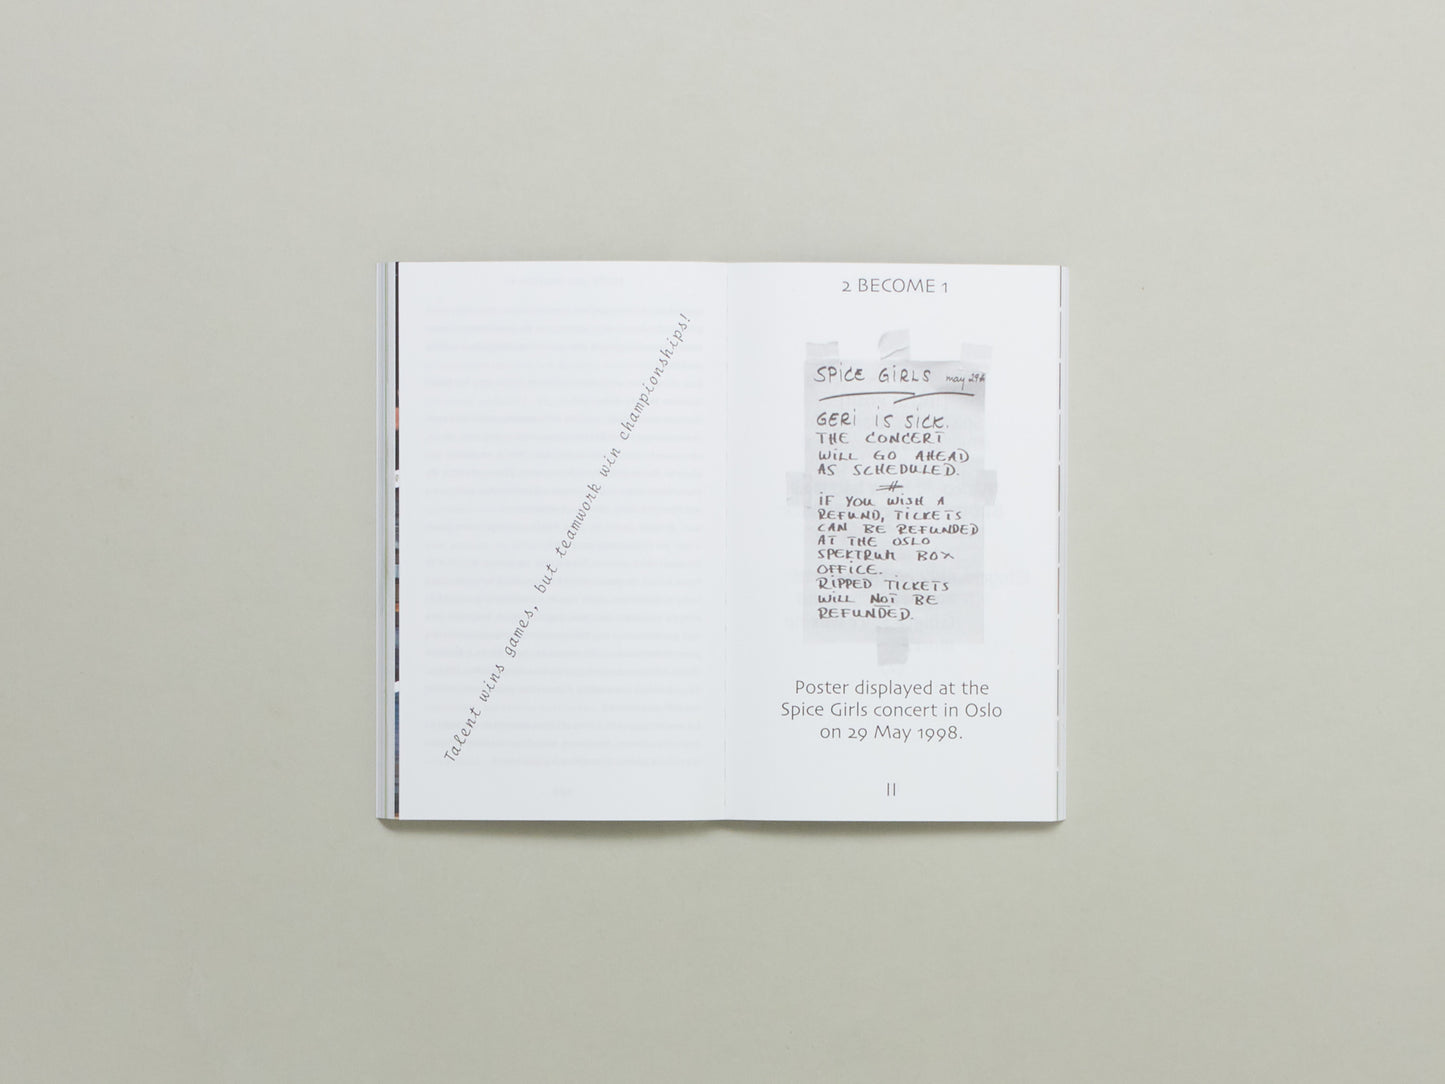 Talent wins games, but teamwork win championships!
2 BECOME 1
SPICE GIRLS may 29th
GERI IS SICK.
THE CONCERT
WILL GO AHEAD
AS SCHEDULED.
#
IF YOU WISH A
REFUND, TICKETS
CAN BE REFUNDED
AT THE OSLO
SPEKTRUM BOX
OFFICE.
RIPPED TICKETS
WILL NOT BE
REFUNDED.
Poster displayed at the
Spice Girls concert in Oslo
on 29 May 1998.
II